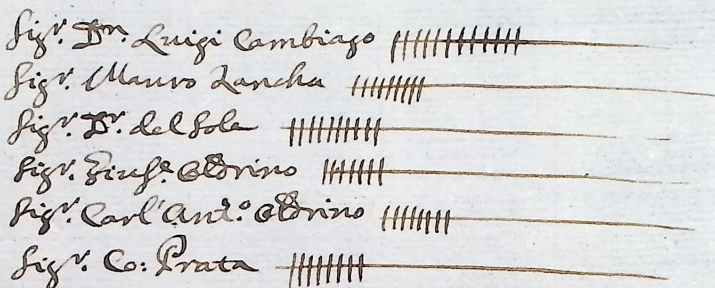 Sigr. Dr. Luigi Cambiago
Sigr. Mauro Zancha
Sigr. Dr. del Sole
Sigr. Giusr. Oldrino
Sigr. Carl' Ant.o Oldrino
Sigr. Co: Prata